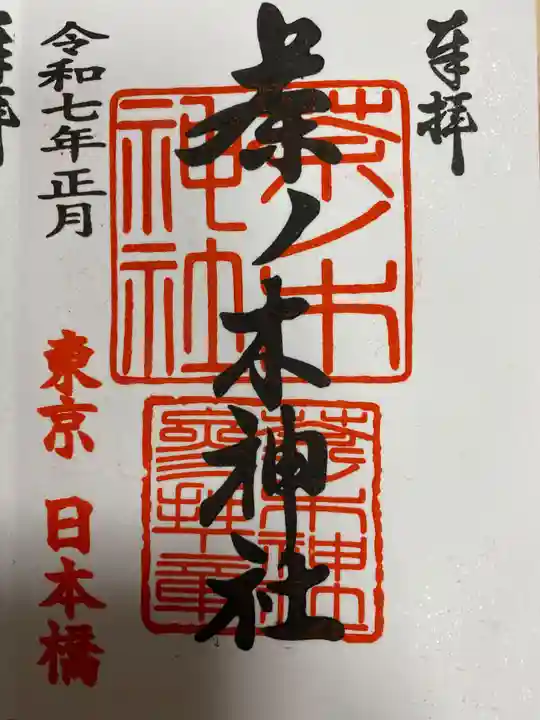 奉拝
茶ノ木神社
茶ノ木
神社
茶ノ木神社
参拝章
令和七年正月
東京 日本橋
拝